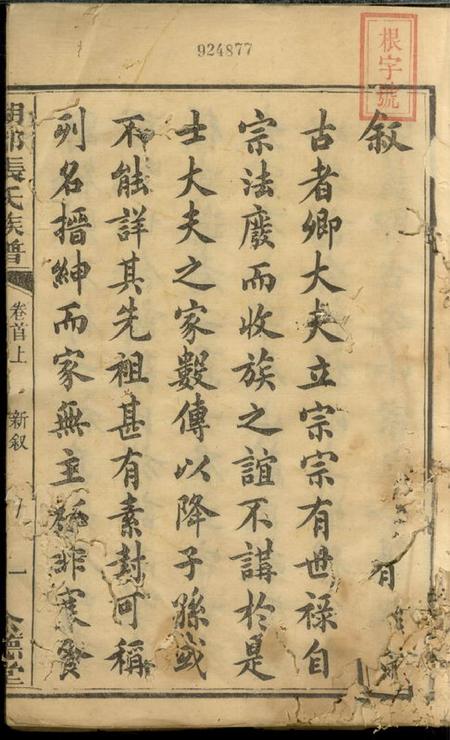 924877
根字號
敘
古者卿大夫立宗宗有世祿自
宗法廢而收族之誼不講於是
士大夫之家數傳以降子孫或
不能詳其先祖甚有素封可稱
列名搢紳而家無主祏非寒賢
張氏族譜
卷首上
新叙
一
堂